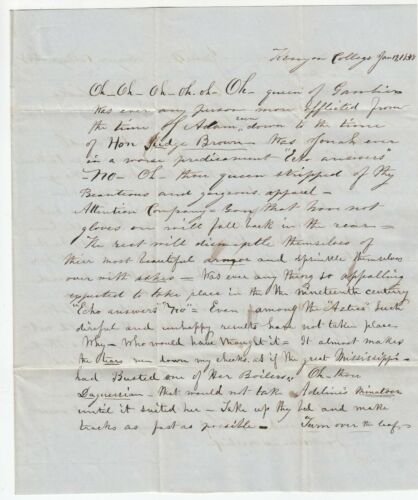 Kenyon College Jan
Oh- Oh- Oh- oh- oh- Oh- queen of Gambier
Was ever any person more afflicted from
the time of Adam even down to the time
of Hon Judge Brown- Was Jonah ever
in a worse predicament "Echo answers"
"No- Oh- thou queen stripped of thy
Beauteous and gorgeous apparel-
Attention Company- Every that have not
gloves on will fall back in the rear-
The rest will dismantle themselves of
their most beautiful and sprinkle themselves
over with ashes- Was ever any thing so appalling
expected to take place in the the nineteenth century
"Echo answers" "No"- Even among the "Azties" such
direful and unhappy results have not taken place
Why- Who would have thought it- It almost makes
the tears run down my cheeks as if the great Mississippi
had Busted one of Her Boilers- Oh- thou
Daguerrian- that would not take Adeline's miniature
until it suited her- Take up thy bed and make
tracks as fast as possible- Turn over the leaf-